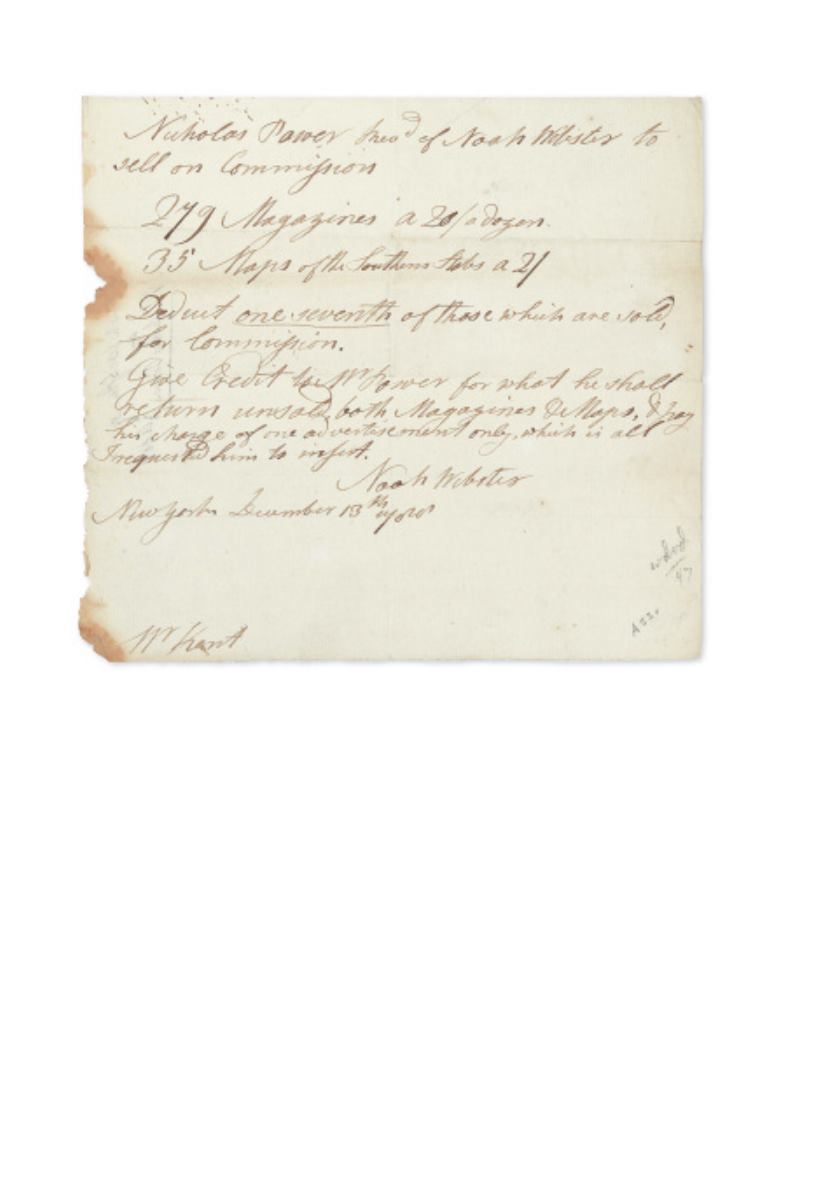 Nicholas Power rec'd of Noah Webster to
sell on Commission
279 Magazines a 20/ a dozen.
35 Maps of the Southern States a 2/
Deduct one seventh of those which are sold,
for Commission.
Give Credit to Mr Power for what he shall
return unsold, both Magazines & Maps, & pay
his charge of one advertisement only, which is all
I requested him to insert.
Noah Webster
New York December 13th
Mr Kent